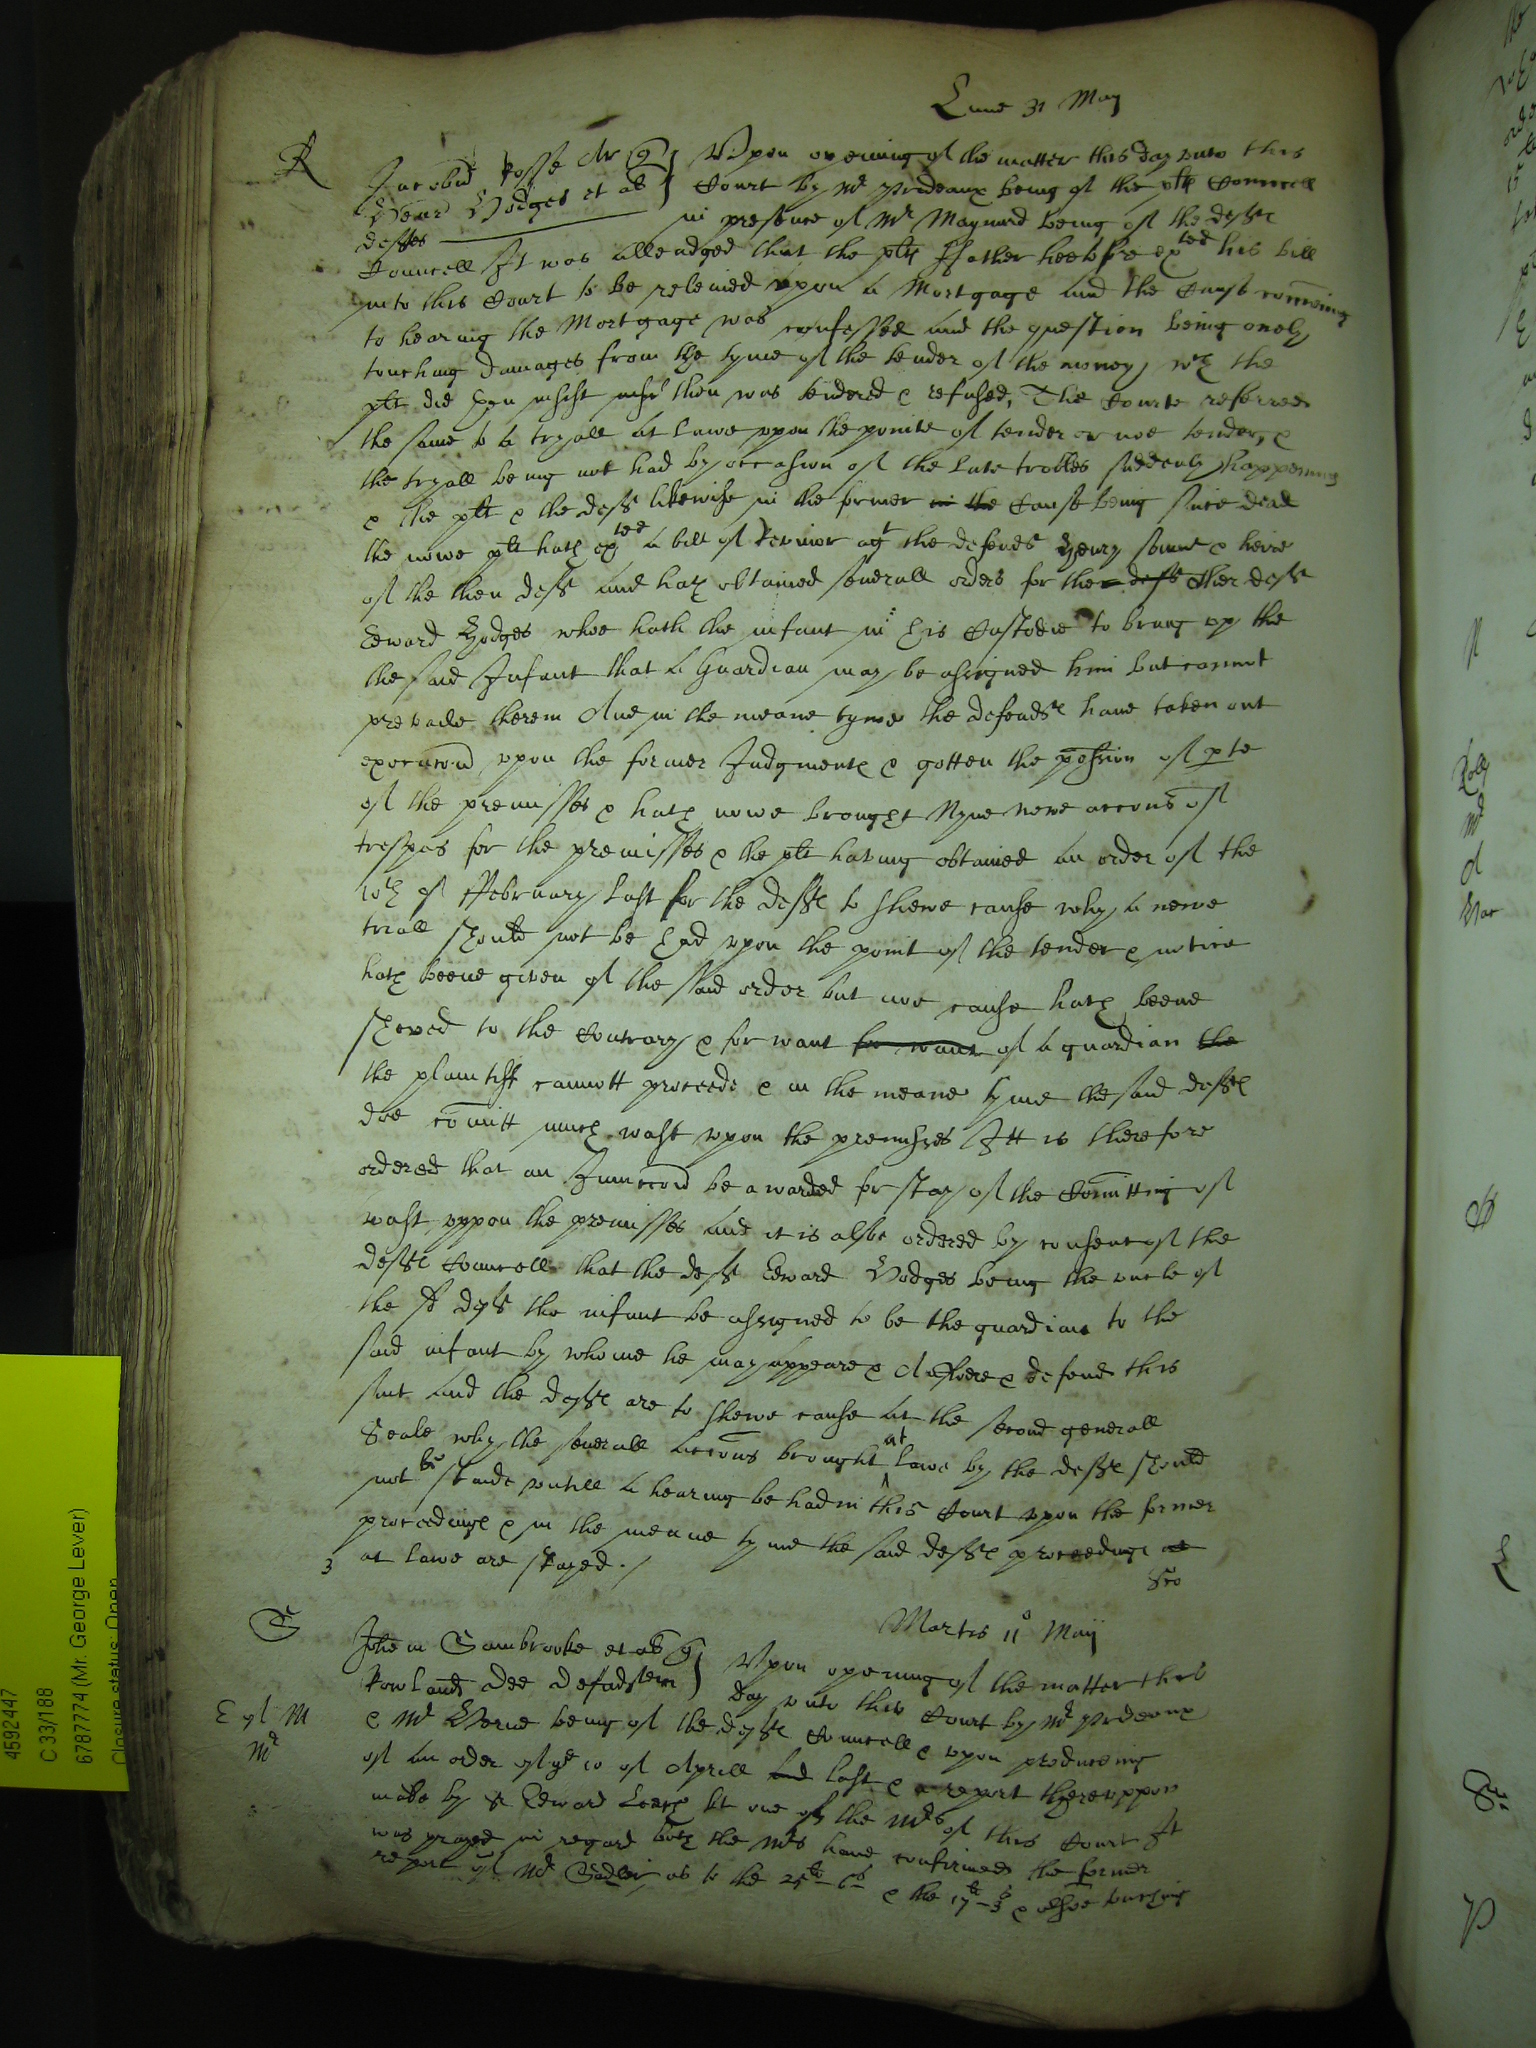 Lune 31 May
R
Jacobus Rosse Ar q
Henr Hodges et als
defts
Upon opening of the matter this day unto this
Court by Mr Prideaux being of the plts Councell
in presence of Mr Maynard being of the defts
Councell It was alleadged that the plts ffather heetofore exted his bill
into this Court to be releived upon a Mortgage and the Cause comeing
to hearing the Mortgage was confessed and the question being onely
touching damages from the tyme of the tender of the money wch the
plt did then was tendered & refused, The Courte referred
the same to a tryall at Lawe upon the pointe of tender or noe tender, &
the tryall being not had by occasion of the late trobles suddenly happening
& the plt & the deft likewise in the former in the Cause being since dead
the nowe plt hath exted a bill of Revivor agt the defendt Henry sonne & heire
of the then deft and hath obtained severall orders for the deft other deft
Edward Hodges whoe hath the infant in his Custodie to bring up the
the said Infant that a Guardian may be assigned him but cannot
prevaile therein And in the meane tyme the defendts have taken out
execucon upon the former Judgmente & gotten the possion of pte
of the premisses & hath nowe brought Nyne newe accons of
trespas for the premisses & the plt having obtained an order of the
10th of ffebruary last for the defts to shewe cause why a newe
triall should not be had upon the point of the tender & notice
hath beene given of the said order but noe cause hath beene
shewed to the Contrary & for want for want of a guardian the
the plaintiff cannott proceede & in the meane tyme the said defts
doe comitt much wast upon the premisses Itt is therefore
ordered that an Iniuccon be awarded for stay of the Comitting of
wast uppon the premisses and it is alsoe ordered by consent of the
defts Councell that the deft Edward Hodges being the uncle of
the sd deft the infant be assigned to be the guardian to the
said infant by whome he may appeare & Aunswere & defend this
suit and the defts are to shewe cause at the second generall
Seale why the severall accons brought at Lawe by the defts should
not be staide untill a hearing be had in this Court upon the former
proceedings & in the meane tyme the said defts proceedings at
3 at Lawe are stayed.
Martis 11o Maij
S
Johem Sambrooke et als q
Rowland Dee Defendtem
Upon opening of the matter this
day unto this Court by Mr Prideaux
E of M
& Mr Herne being of the defts Councell & upon produceing
Mr
of an order of ye 10 of Aprill last & a report thereuppon
made by Sr Edward Leech kt one of the Mrs of this Court It
was prayed in regard both the Mrs have confirmed the former
report of Mr as to the 25th 6th & the 17th & alsoe touching